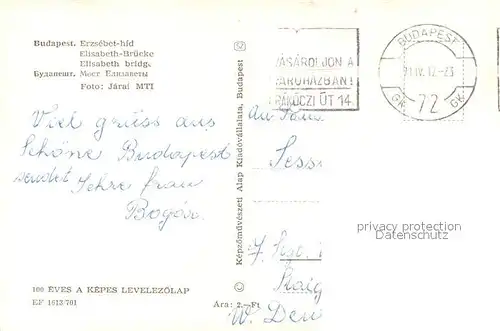 Budapest. Erzsébet-híd
Elisabeth-Brücke
Elisabeth bridge
Будапешт. Мост Елизаветы
Foto: Járai MTI
VÁSÁROLJON A
ÁRUHÁZBAN!
RÁKÓCZI ÚT 14.
BUDAPEST
71 IV. 12-23
GK 72 GK
Viel grüss aus
Schöne Budapest
sendet Sehre frau
Bogós
An Fam
Sess
W. Deu
Képzőművészeti Alap Kiadóvállalata, Budapest
privacy protection
Datenschutz
100 ÉVES A KÉPES LEVELEZŐLAP
EF 1613/701
Ára: 2.– Ft